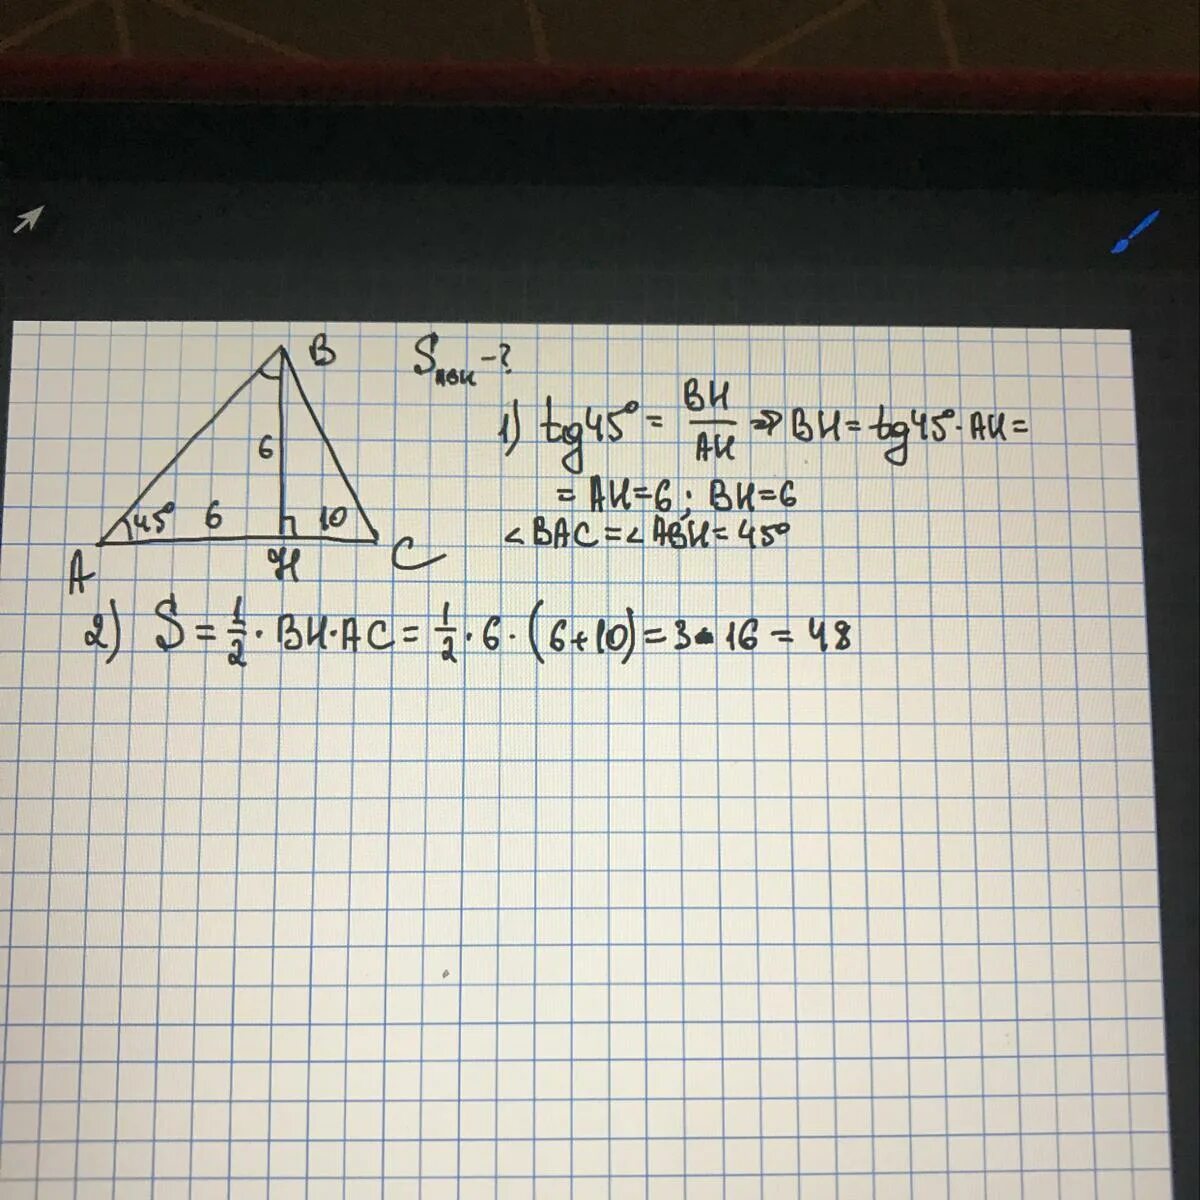 B
6
45° 6 10
A H C
S_ABH - ?
1) tg45° = BH/AH ⇒ BH = tg45° · AH =
= AH = 6; BH = 6
∠BAC = ∠ABH = 45°
2) S = 1/2 · BH · AC = 1/2 · 6 · (6+10) = 3 · 16 = 48